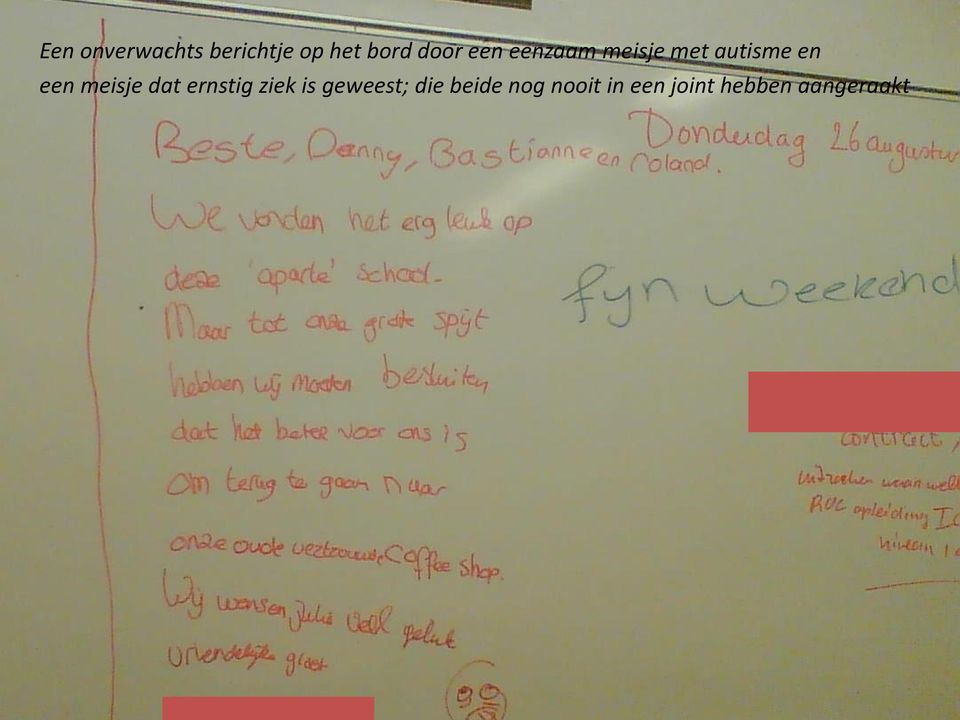 Een onverwachts berichtje op het bord door een eenzaam meisje met autisme en
een meisje dat ernstig ziek is geweest; die beide nog nooit in een joint hebben aangeraakt
Donderdag 26 augustus
Beste, Danny, Bastianne en roland.
We vonden het erg leuk op
deze 'aparte' school.
fijn weekend
Maar tot onze grote spijt
hebben wij moeten besluiten
dat het beter voor ons is
contract,
om terug te gaan naar
ROC opleiding
niveau 1
onze oude vertrouwde coffee shop.
Wij wensen jullie veel geluk
vriendelijke groet